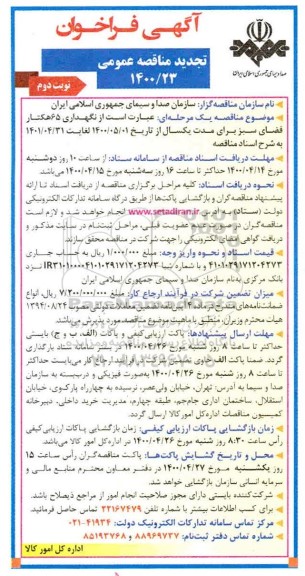 آگهی فراخوان
تجدید مناقصه عمومی
۱۴۰۰/۲۳
نوبت دوم
صدا و سیمای جمهوری اسلامی ایران
نام سازمان مناقصه‌گزار: سازمان صدا و سیمای جمهوری اسلامی ایران
موضوع مناقصه یک مرحله‌ای: عبارت است از نگهداری ۶۵هکتار
فضای سبز برای مدت یکسال از تاریخ ۱۴۰۰/۰۵/۰۱ لغایت ۱۴۰۱/۰۴/۳۱
به شرح اسناد مناقصه
مهلت دریافت اسناد مناقصه از سامانه ستاد: از ساعت ۱۰ روز دوشنبه
مورخ ۱۴۰۰/۰۴/۱۴ حداکثر تا ساعت ۱۶ روز سه‌شنبه مورخ ۱۴۰۰/۰۴/۱۵ می‌باشد.
نحوه دریافت اسناد: کلیه مراحل برگزاری مناقصه از دریافت اسناد تا ارائه
پیشنهاد مناقصه‌گران و بازگشایی پاکت‌ها از طریق درگاه سامانه تدارکات الکترونیکی
دولت (ستاد) www.setadiran.ir انجام خواهد شد و لازم است
مناقصه‌گران در صورت عدم عضویت قبلی، مراحل ثبت‌نام در سایت مذکور و
دریافت گواهی امضای الکترونیکی را جهت شرکت در مناقصه محقق سازند.
قیمت اسناد و نحوه واریز وجه: مبلغ ۱/۰۰۰/۰۰۰ ریال به حساب جاری
بانک مرکزی به‌نام سازمان صدا و سیمای جمهوری اسلامی ایران
میزان تضمین شرکت در فرآیند ارجاع کار: مبلغ ۷/۳۰۰/۰۰۰/۰۰۰ ریال، انواع
هیات محترم وزیران، منطبق با ماهیت موضوع مناقصه مورد پذیرش می‌باشد.
مهلت ارسال پیشنهادها: پاکت ارزیابی کیفی و پاکات (الف، ب و ج) بایستی
حداکثر تا ساعت ۸ روز شنبه مورخ ۱۴۰۰/۰۴/۲۶ در سامانه ستاد بارگذاری
گردد. ضمنا پاکت الف حاوی تضمین شرکت در فرآیند ارجاع کار می‌بایست حداکثر
تا ساعت ۸ روز شنبه مورخ ۱۴۰۰/۰۴/۲۶ به‌صورت فیزیکی و دربسته به سازمان
صدا و سیما به آدرس: تهران، خیابان ولی‌عصر، نرسیده به چهارراه پارک‌وی، خیابان
استقلال، ساختمان اداری جام‌جم، طبقه چهارم، مدیریت خرید داخلی، دبیرخانه
کمیسیون مناقصات اداره کل امور کالا ارسال گردد.
زمان بازگشایی پاکات ارزیابی کیفی: زمان بازگشایی پاکات ارزیابی کیفی
رأس ساعت ۸:۳۰ روز شنبه مورخ ۱۴۰۰/۰۴/۲۶ در اداره کل امور کالا می‌باشد.
محل و تاریخ گشایش پاکت‌ها: پاکت مناقصه‌گران رأس ساعت ۱۵
روز یکشنبه مورخ ۱۴۰۰/۰۴/۲۷ در دفتر معاون محترم منابع مالی و
سرمایه انسانی سازمان بازگشایی خواهد شد.
شرکت‌کننده بایستی دارای مجوز صلاحیت انجام امور از مراجع ذیصلاح باشد.
برای کسب اطلاعات بیشتر با شماره تلفن ۲۲۱۶۷۴۷۹ تماس حاصل فرمائید.
مرکز تماس سامانه تدارکات الکترونیک دولت: ۴۱۹۳۴-۰۲۱
شماره تماس دفتر ثبت‌نام: ۸۸۹۶۹۷۳۷ و ۸۵۱۹۳۷۶۸
اداره کل امور کالا